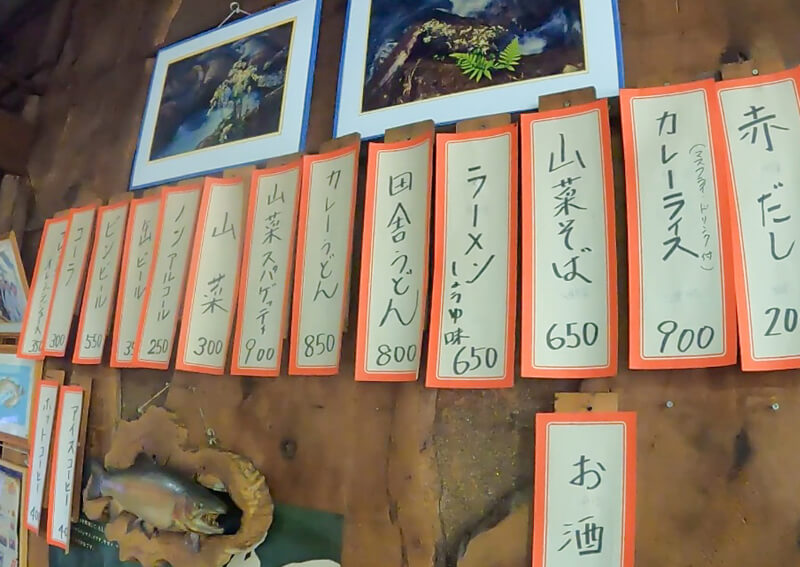 赤だし
20
カレーライス
(マスフライ ドリンク付)
900
山菜そば
650
ラーメン
しょうゆ味
650
田舎うどん
800
カレーうどん
850
山菜スパゲッティ
900
山菜
300
ノンアルコール
250
缶ビール
35
ビンビール
550
コーラ
300
350
お酒
アイスコーヒー
4
ホットコーヒー
40